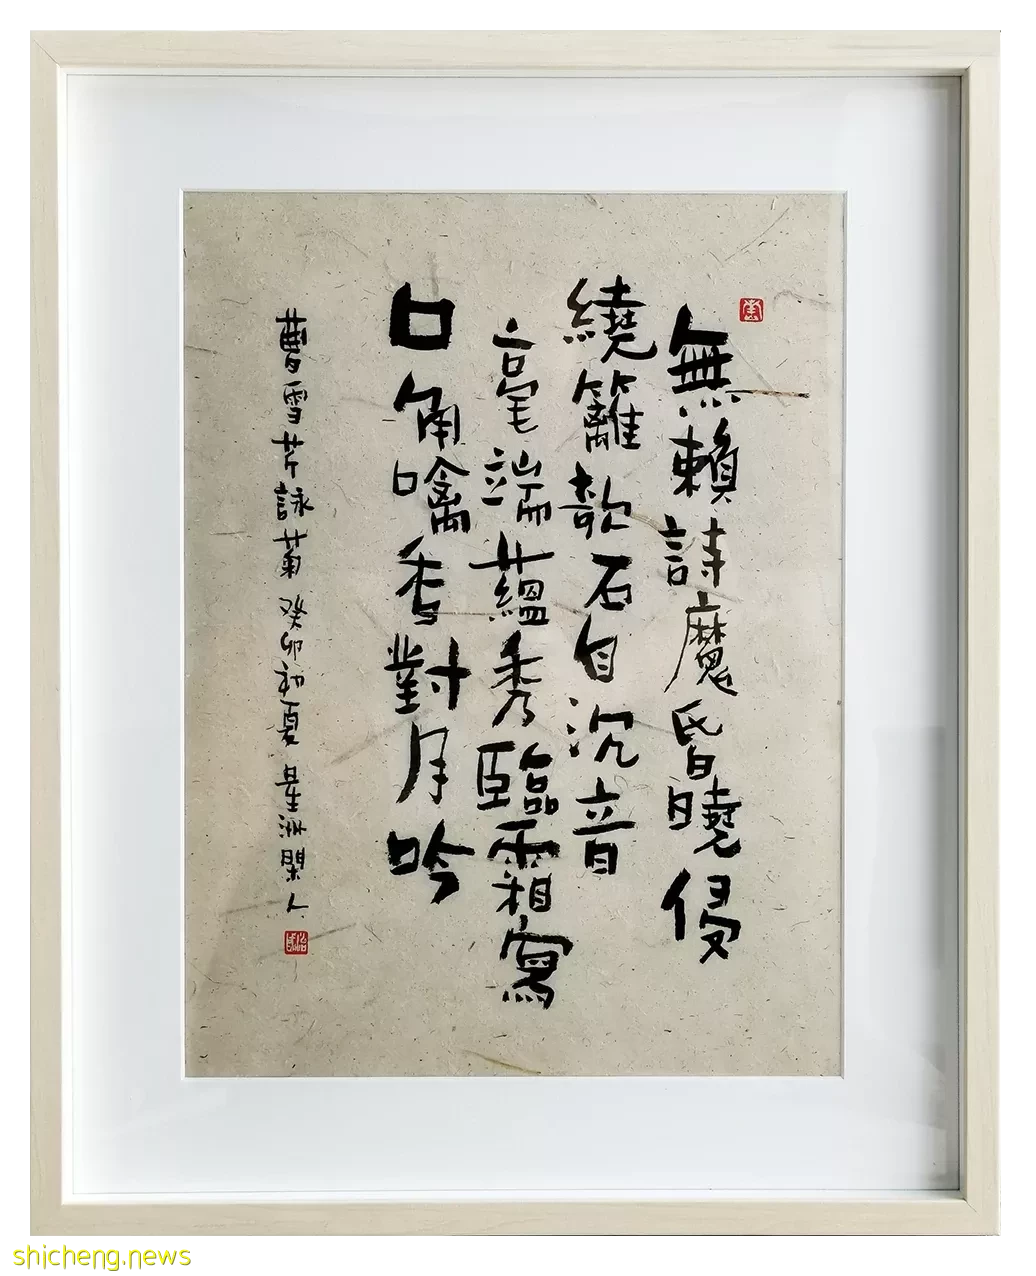 無賴詩魔昏曉侵
繞籬欹石自沉音
毫端蘊秀臨霜寫
口角噙香對月吟
曹雪芹詠菊 癸卯初夏 星洲閑人
shicheng.news